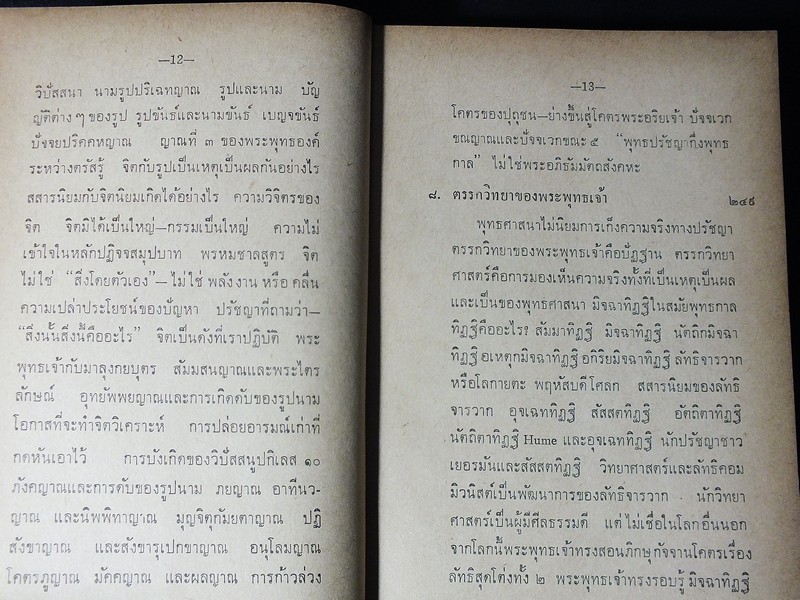 —12—
วิปัสสนา นามรูปปริเฉทญาณ รูปและนาม บัญ
ญัติต่าง ๆ ของรูป รูปขันธ์และนามขันธ์ เบญจขันธ์
ปัจจยปริคคหญาณ ญาณที่ ๓ ของพระพุทธองค์
ระหว่างตรัสรู้ จิตกับรูปเป็นเหตุเป็นผลกันอย่างไร
สสารนิยมกับจิตนิยมเกิดได้อย่างไร ความวิจิตรของ
จิต จิตมิได้เป็นใหญ่—กรรมเป็นใหญ่ ความไม่
เข้าใจในหลักปฏิจจสมุปบาท พรหมชาลสูตร จิต
ไม่ใช่ “สิ่งโดยตัวเอง”—ไม่ใช่ พลังงาน หรือ คลื่น
ความเปล่าประโยชน์ของปัญหา ปรัชญาที่ถามว่า—
“สิ่งนั้นสิ่งนี้คืออะไร” จิตเป็นดังที่เราปฏิบัติ พระ
พุทธเจ้ากับมาลุงกยบุตร สัมมสนญาณและพระไตร
ลักษณ์ อุทยัพพยญาณและการเกิดดับของรูปนาม
โอกาสที่จะทำจิตวิเคราะห์ การปล่อยอารมณ์เก่าที่
กดหันเอาไว้ การบังเกิดของวิปัสสนูปกิเลส ๑๐
ภังคญาณและการดับของรูปนาม ภยญาณ อาทีนว-
ญาณ และนิพพิทาญาณ มุญจิตุกัมยตาญาณ ปฏิ
สังขาญาณ และสังขารุเปกขาญาณ อนุโลมญาณ
โคตรภูญาณ มัคคญาณ และผลญาณ การก้าวล่วง
—13—
โคตรของปุถุชน—ย่างขึ้นสู่โคตรพระอริยเจ้า ปัจจเวก
ขณญาณและปัจจเวกขณะ ๕ “พุทธปรัชญากึ่งพุทธ
กาล” ไม่ใช่พระอภิธัมมัตถสังคหะ
๘. ตรรกวิทยาของพระพุทธเจ้า ๒๔๙
พุทธศาสนาไม่นิยมการเก็งความจริงทางปรัชญา
ตรรกวิทยาของพระพุทธเจ้าคือปัฏฐาน ตรรกวิทยา
ศาสตร์คือการมองเห็นความจริงทั้งที่เป็นเหตุเป็นผล
และเป็นของพุทธศาสนา มิจฉาทิฏฐิในสมัยพุทธกาล
ทิฏฐิคืออะไร? สัมมาทิฏฐิ มิจฉาทิฏฐิ นัตถิกมิจฉา
ทิฏฐิ อเหตุกมิจฉาทิฏฐิ อกิริยมิจฉาทิฏฐิ ลัทธิจารวาก
หรือโลกายตะ พฤหัสบดีโศลก สสารนิยมของลัทธิ
จารวาก อุจเฉททิฏฐิ สัสสตทิฏฐิ อัตถิตาทิฏฐิ
นัตถิตาทิฏฐิ Hume และอุจเฉททิฏฐิ นักปรัชญาชาว
เยอรมันและสัสสตทิฏฐิ วิทยาศาสตร์และลัทธิคอม
มิวนิสต์เป็นพัฒนาการของลัทธิจารวาก นักวิทยา
ศาสตร์เป็นผู้มีศีลธรรมดี แต่ ไม่เชื่อในโลกอื่นนอก
จากโลกนี้พระพุทธเจ้าทรงสอนภิกษุกัจจานโคตรเรื่อง
ลัทธิสุดโต่งทั้ง ๒ พระพุทธเจ้าทรงรอบรู้ มิจฉาทิฏฐิ